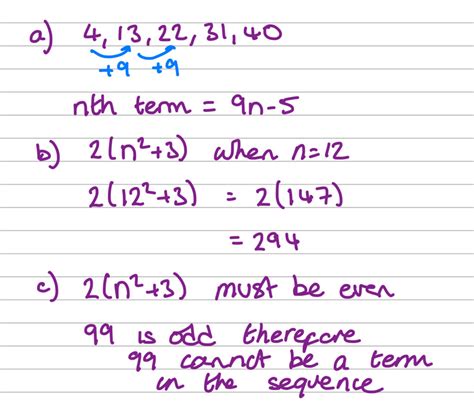 a) 4, 13, 22, 31, 40
+9 +9
nth term = 9n-5
b) 2(n²+3) when n=12
2(12²+3) = 2(147)
= 294
c) 2(n²+3) must be even
99 is odd therefore
99 cannot be a term
in the sequence